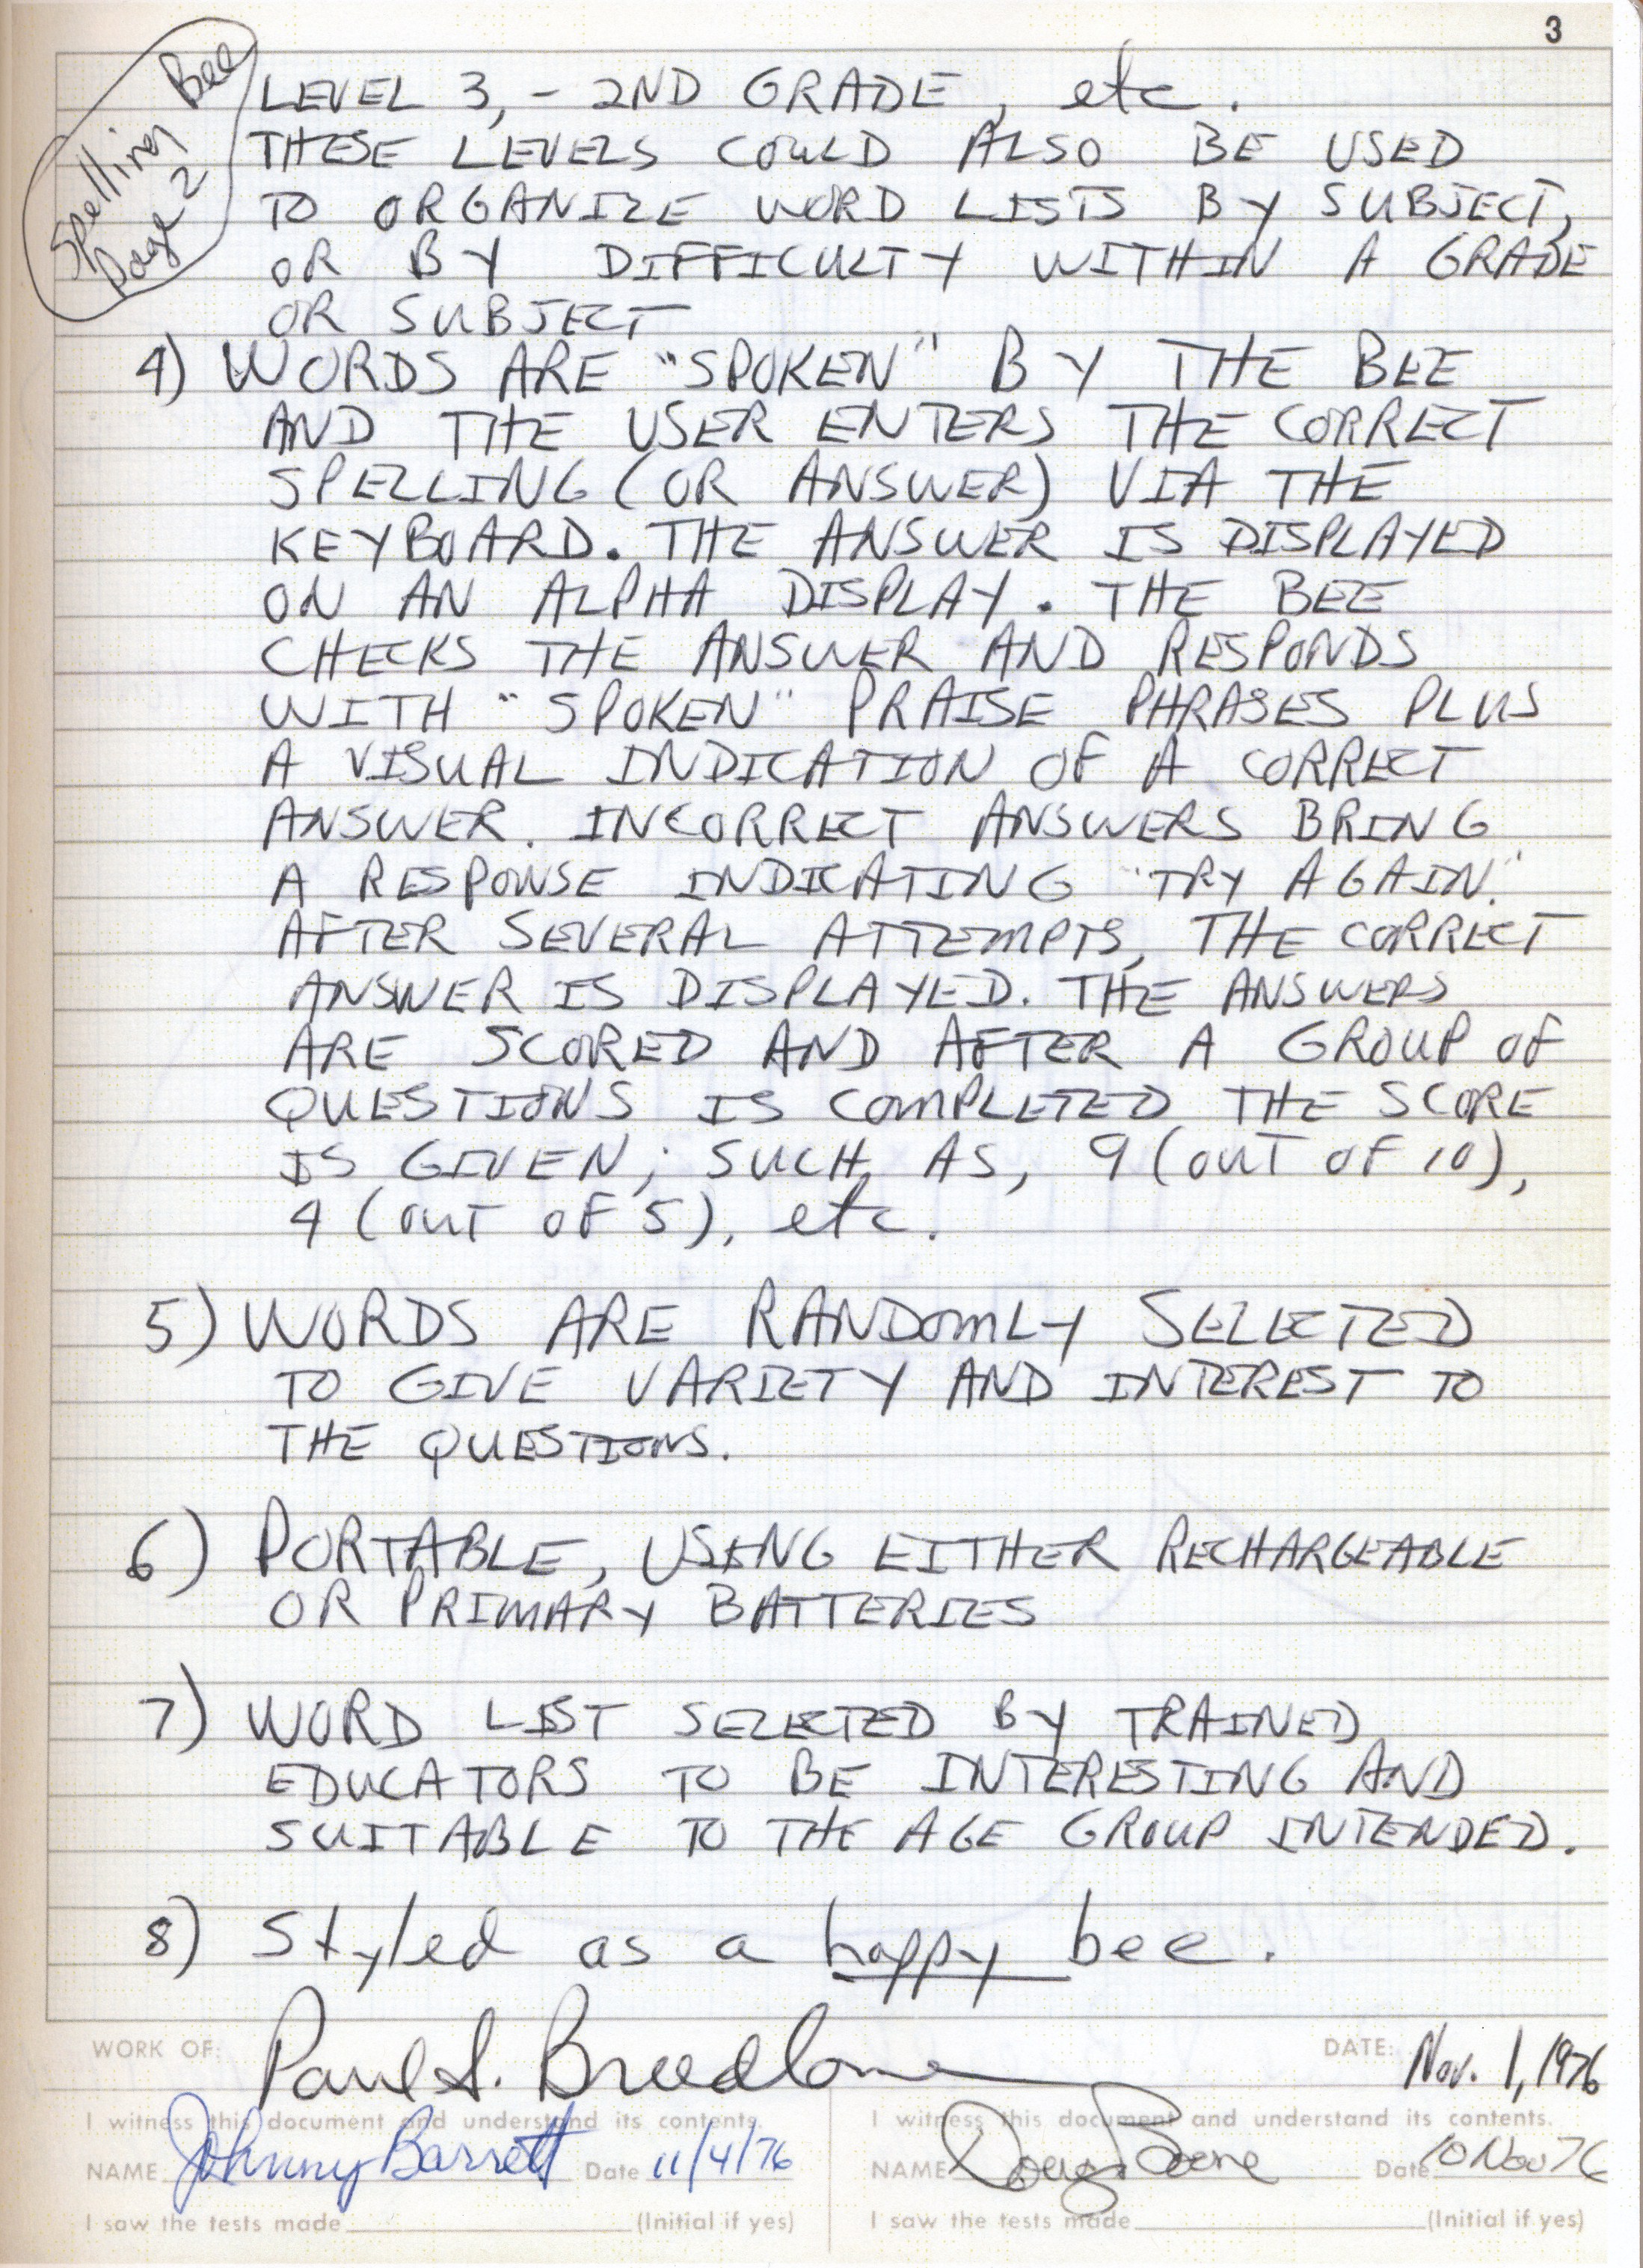 3
Spelling Bee
Page 2
LEVEL 3, - 2ND GRADE, etc.
THESE LEVELS COULD ALSO BE USED
TO ORGANIZE WORD LISTS BY SUBJECT,
OR BY DIFFICULTY WITHIN A GRADE
OR SUBJECT
4) WORDS ARE "SPOKEN" BY THE BEE
AND THE USER ENTERS THE CORRECT
SPELLING (OR ANSWER) VIA THE
KEYBOARD. THE ANSWER IS DISPLAYED
ON AN ALPHA DISPLAY. THE BEE
CHECKS THE ANSWER AND RESPONDS
WITH "SPOKEN" PRAISE PHRASES PLUS
A VISUAL INDICATION OF A CORRECT
ANSWER. INCORRECT ANSWERS BRING
A RESPONSE INDICATING "TRY AGAIN."
AFTER SEVERAL ATTEMPTS, THE CORRECT
ANSWER IS DISPLAYED. THE ANSWERS
ARE SCORED AND AFTER A GROUP OF
QUESTIONS IS COMPLETED THE SCORE
IS GIVEN; SUCH AS, 9 (OUT OF 10),
4 (OUT OF 5), etc.
5) WORDS ARE RANDOMLY SELECTED
TO GIVE VARIETY AND INTEREST TO
THE QUESTIONS.
6) PORTABLE, USING EITHER RECHARGEABLE
OR PRIMARY BATTERIES
7) WORD LIST SELECTED BY TRAINED
EDUCATORS TO BE INTERESTING AND
SUITABLE TO THE AGE GROUP INTENDED.
8) Styled as a happy bee.
WORK OF: Paul S. Breedlove DATE: Nov. 1, 1976
I witness this document and understand its contents.
NAME Johnny Barrett Date 11/4/76
I saw the tests made (Initial if yes)
I witness this document and understand its contents.
NAME Doug Boone Date 10 Nov 76
I saw the tests made (Initial if yes)